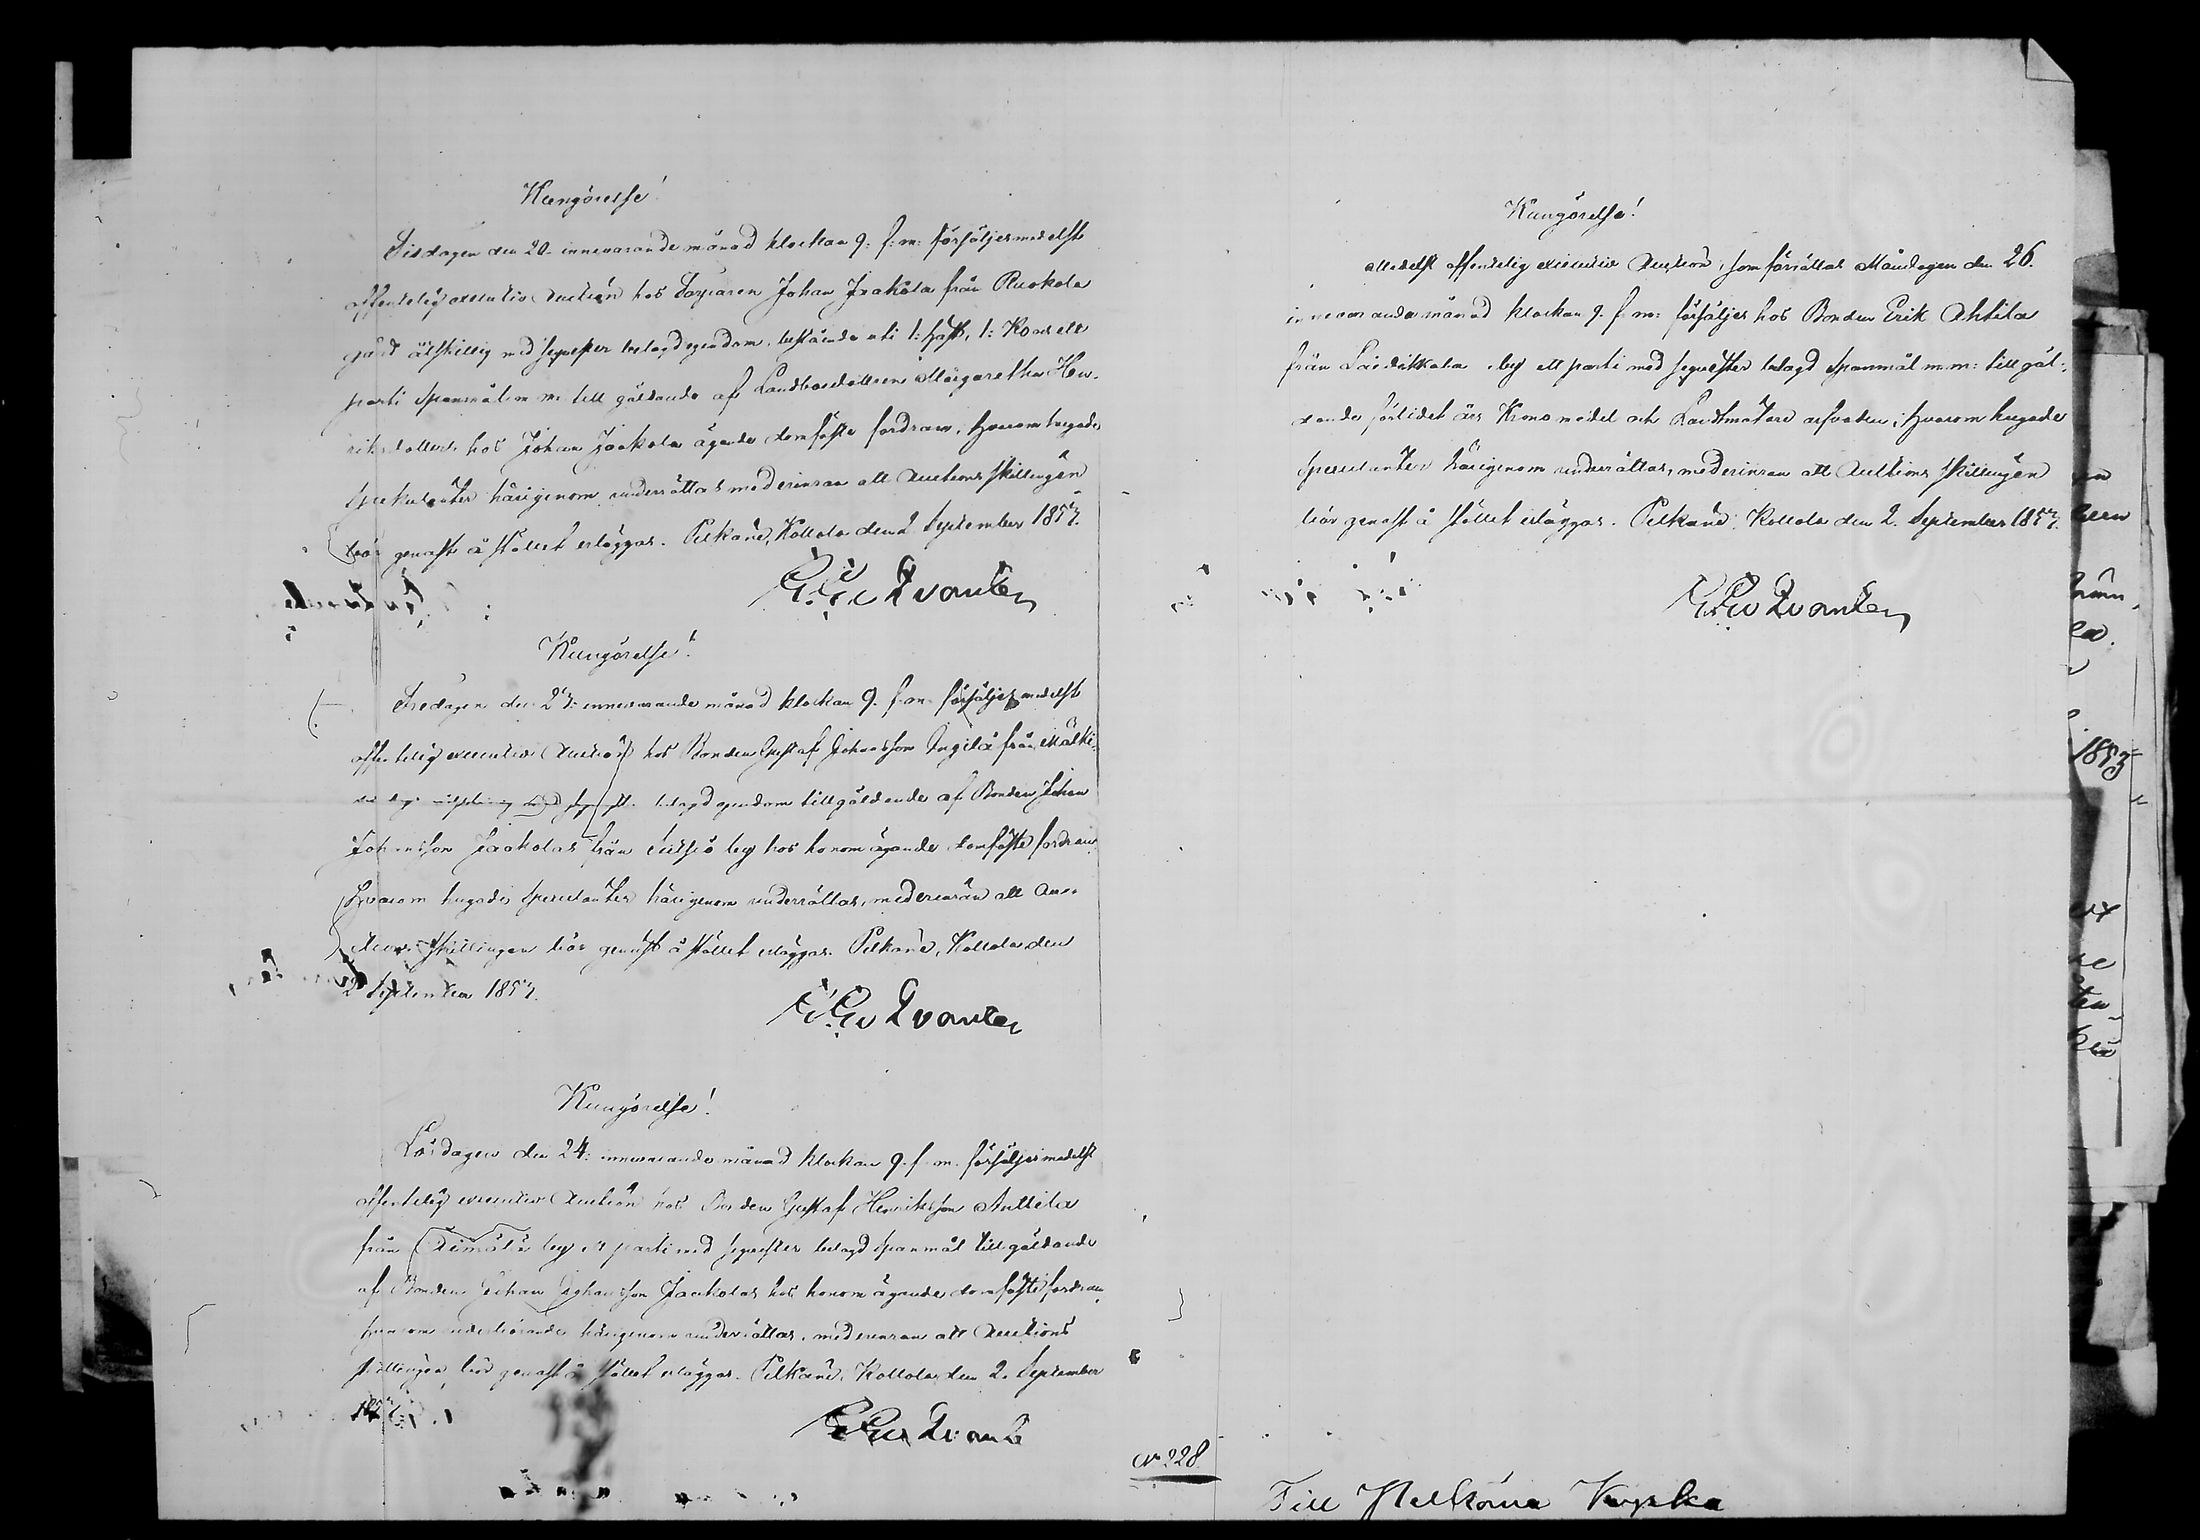 Kungörelse!
Tisdagen den 20. innevarande månad klockan 9. f: m: försäljes medelst
offentelig executiv Auction hos Torparen Johan Jaakola från Ruokola
gård åtskillig med sequester belagd egendom, bestående uti 1: häst, 1: Ko och ett
parti Spanmål m. m: till gäldande af Landbondedottren Margaretha Hen-
riksdotters hos Johan Jaakola ägande domfäste fordran, hvarom hugade
Spekulanter härigenom underrättas med erinran att Auctions skillingen
bör genast å stället erläggas. Pelkäne, Kollola den 2 September 1853.
von Qvanten
Kungörelse!
Fredagen den 23: innevarande månad klockan 9. f. m. försäljes medelst
offentelig executiv Auction hos Bonden Gustaf Johansson Ingilä från Mälki-
by belagd egendom till gäldande af Bonden Johan
Johansson Jaakolas från by hos honom ägande domfäste fordran,
hvarom hugade Speculanter härigenom underrättas, med erinran att Auc-
tions Skillingen bör genast å stället erläggas. Pelkäne, Kollola den
2 September 1853.
von Qvanten
Kungörelse!
Lördagen den 24: innevarande månad klockan 9. f. m. försäljes medelst
offentelig executiv Auction hos Bonden Gustaf Henriksson Anttila
från by ett parti med sequester belagd Spanmål till gäldande
af Bonden Johan Johansson Jaakolas hos honom ägande domfäste fordran,
hvarom vederbörande härigenom underrättas, med erinran att Auctions
skillingen bör genast å stället erläggas. Pelkäne, Kollola den 2. September
1853.
von Qvanten
No 228
Kungörelse!
Medelst offentelig executiv Auction, som förrättas Måndagen den 26.
innevarande månad klockan 9. f. m: försäljes hos Bonden Erik Ahtila
från Laidikkala by ett parti med sequester belagd Spanmål m. m: till gäl-
dande förlidet års Krono medel och Landtmätare arfvoden; hvarom hugade
Speculanter härigenom underrättas, med erinran att Auctions skillingen
bör genast å stället erläggas. Pelkäne, Kollola den 2. September 1853.
von Qvanten
Till Pelkäne Kyrka
1853